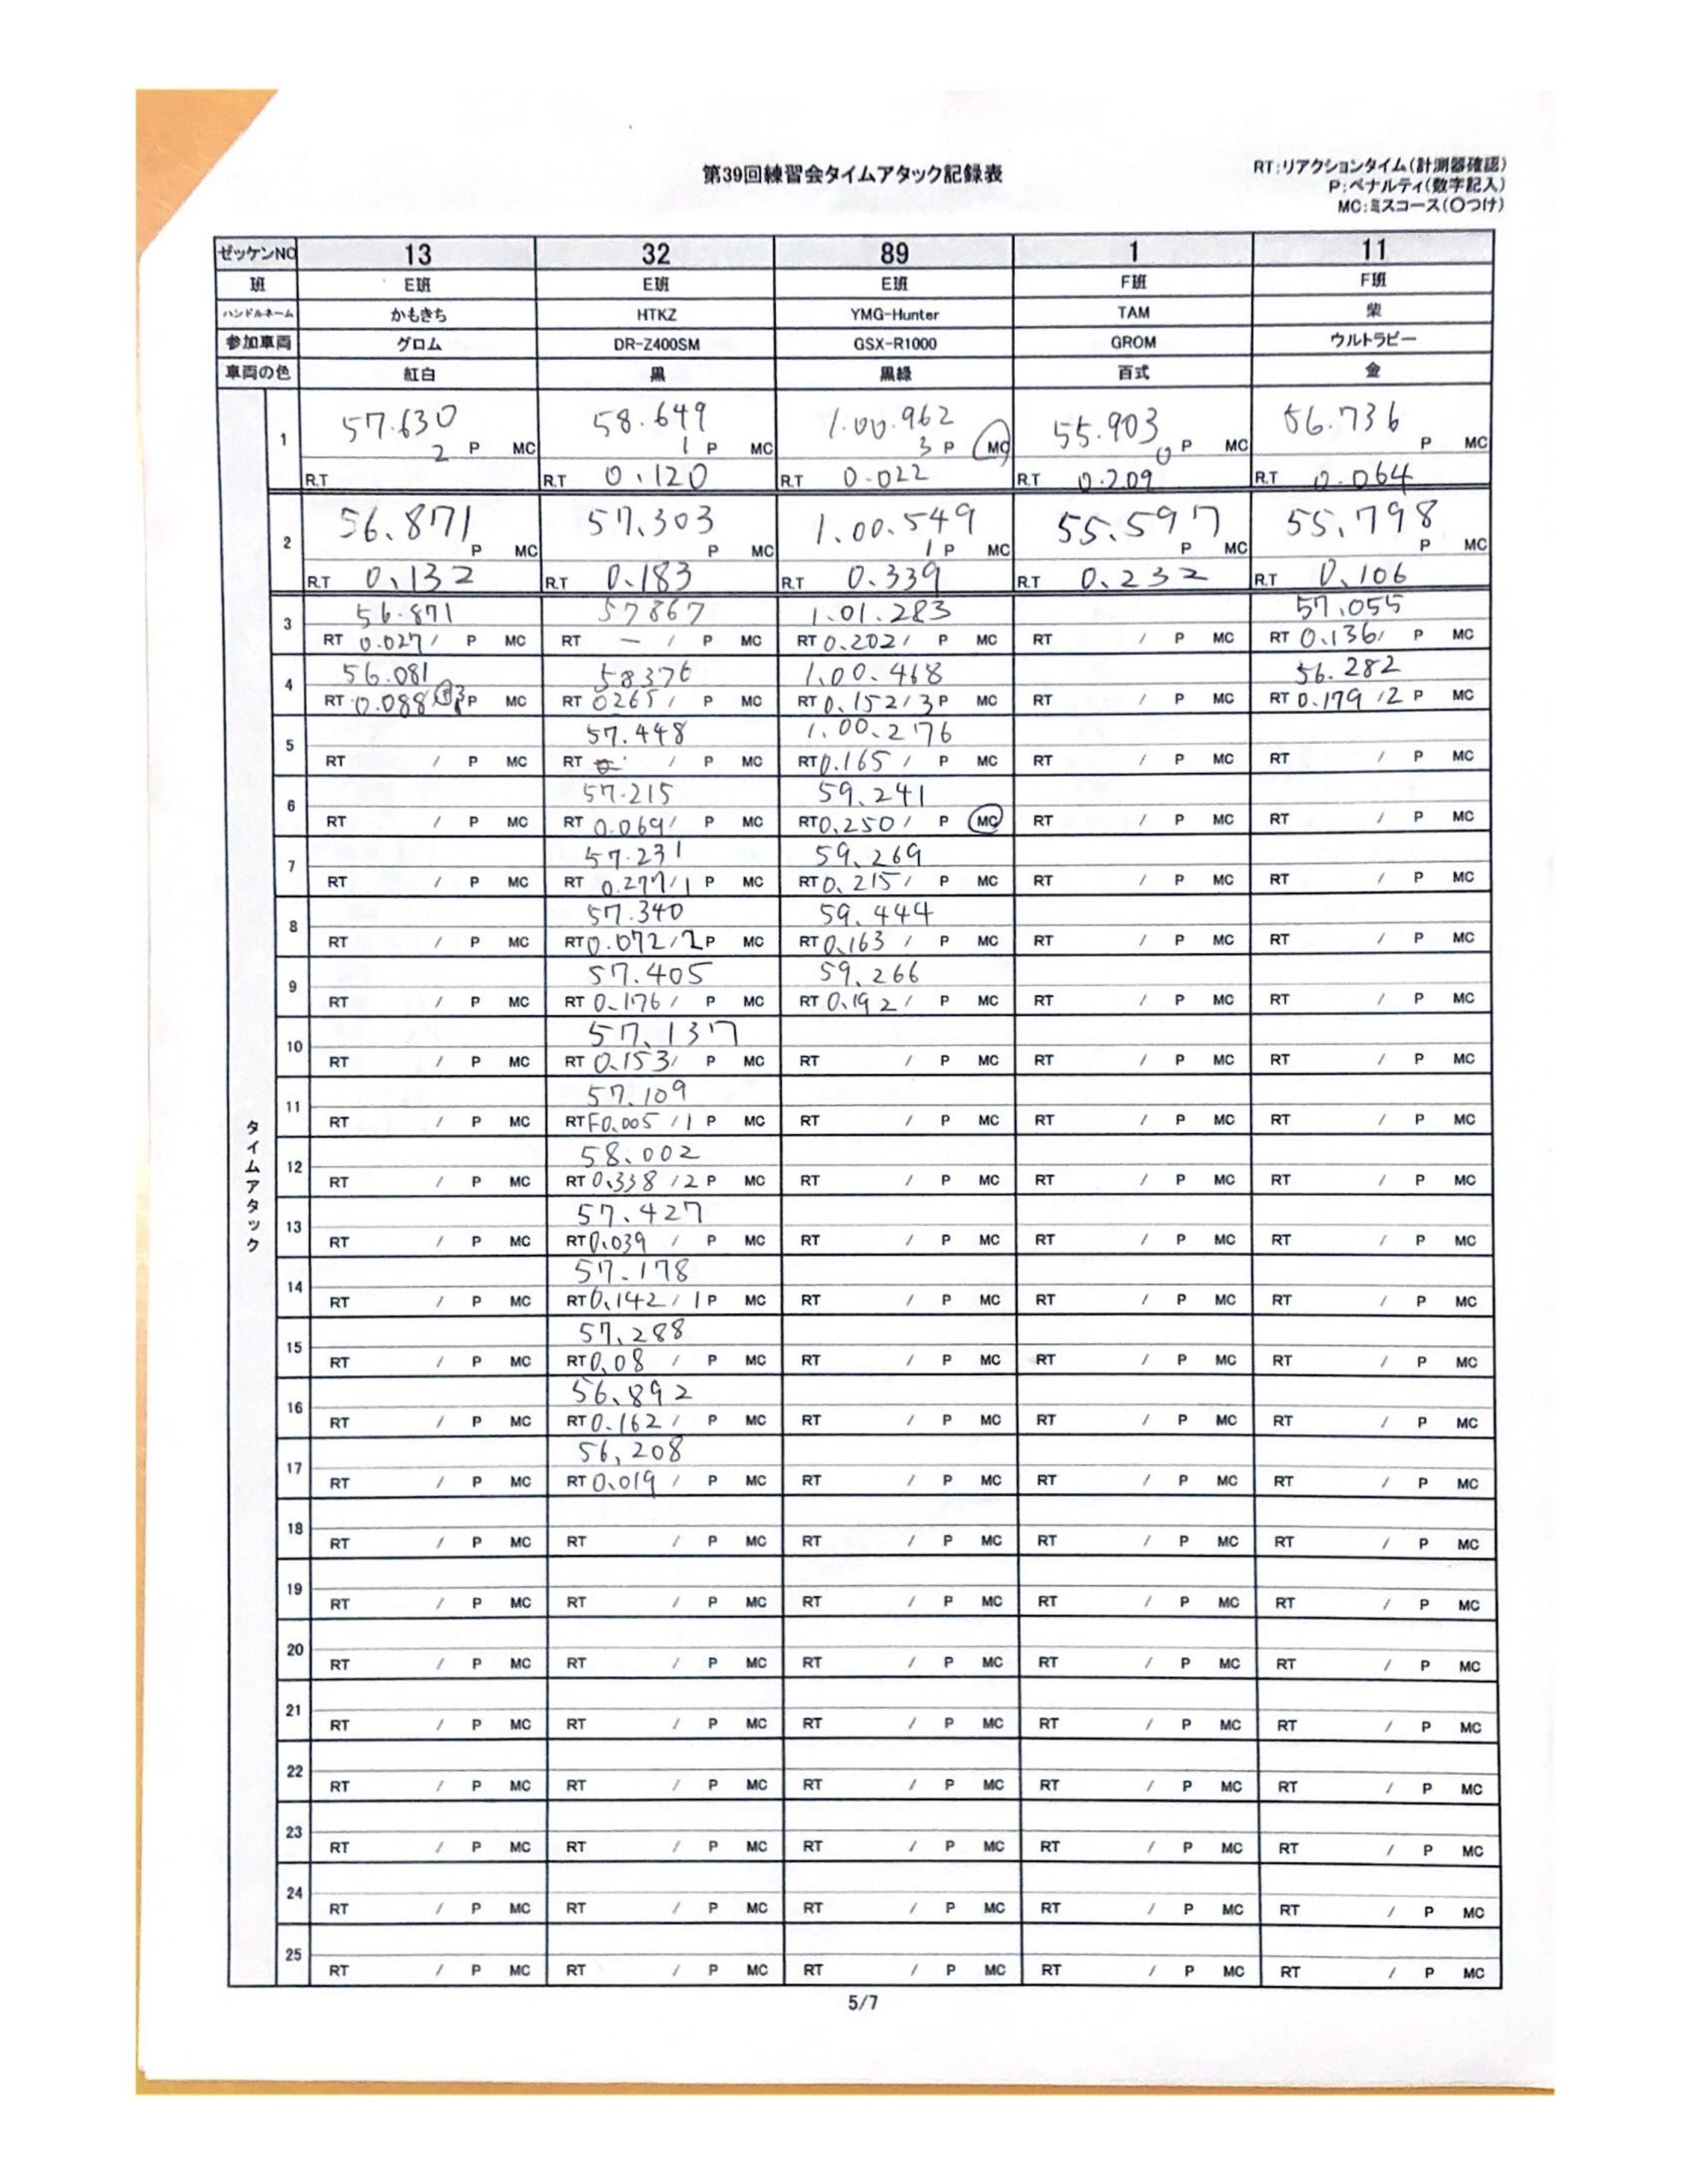 第39回練習会タイムアタック記録表
RT:リアクションタイム(計測器確認)
P:ペナルティ(数字記入)
MC:ミスコース(〇つけ)
ゼッケンNO 13 32 89 1 11
班 E班 E班 E班 F班 F班
ハンドルネーム かもきち HTKZ YMG-Hunter TAM 柴
参加車両 グロム DR-Z400SM GSX-R1000 GROM ウルトラビー
車両の色 紅白 黒 黒緑 百式 金
タイムアタック
1 57.630 58.649 1.00.962 55.903 56.736
2 P MC 1 P MC 3 P MC 0 P MC P MC
R.T R.T 0.120 R.T 0.022 R.T 0.209 R.T 0.064
2 56.871 57.303 1.00.549 55.597 55.798
P MC P MC 1 P MC P MC P MC
R.T 0.132 R.T 0.183 R.T 0.339 R.T 0.232 R.T 0.106
3 56.871 57867 1.01.283 57.055
RT 0.027 / P MC RT — / P MC RT 0.202 / P MC RT / P MC RT 0.136 / P MC
4 56.081 58376 1.00.468 56.282
RT 0.088 P MC RT 0265 / P MC RT 0.152 / 3 P MC RT / P MC RT 0.179 / 2 P MC
5 57.448 1.00.276
RT / P MC RT / P MC RT 0.165 / P MC RT / P MC RT / P MC
6 57.215 59.241
RT / P MC RT 0.069 / P MC RT 0.250 / P MC RT / P MC RT / P MC
7 57.231 59.269
RT / P MC RT 0.277 / 1 P MC RT 0.215 / P MC RT / P MC RT / P MC
8 57.340 59.444
RT / P MC RT 0.072 / 2 P MC RT 0.163 / P MC RT / P MC RT / P MC
9 57.405 59.266
RT / P MC RT 0.176 / P MC RT 0.192 / P MC RT / P MC RT / P MC
10 57.137
RT / P MC RT 0.153 / P MC RT / P MC RT / P MC RT / P MC
11 57.109
RT / P MC RT F0.005 / 1 P MC RT / P MC RT / P MC RT / P MC
12 58.002
RT / P MC RT 0.338 / 2 P MC RT / P MC RT / P MC RT / P MC
13 57.427
RT / P MC RT 0.039 / P MC RT / P MC RT / P MC RT / P MC
14 57.178
RT / P MC RT 0.142 / 1 P MC RT / P MC RT / P MC RT / P MC
15 57.288
RT / P MC RT 0.08 / P MC RT / P MC RT / P MC RT / P MC
16 56.892
RT / P MC RT 0.162 / P MC RT / P MC RT / P MC RT / P MC
17 56,208
RT / P MC RT 0.019 / P MC RT / P MC RT / P MC RT / P MC
18
RT / P MC RT / P MC RT / P MC RT / P MC RT / P MC
19
RT / P MC RT / P MC RT / P MC RT / P MC RT / P MC
20
RT / P MC RT / P MC RT / P MC RT / P MC RT / P MC
21
RT / P MC RT / P MC RT / P MC RT / P MC RT / P MC
22
RT / P MC RT / P MC RT / P MC RT / P MC RT / P MC
23
RT / P MC RT / P MC RT / P MC RT / P MC RT / P MC
24
RT / P MC RT / P MC RT / P MC RT / P MC RT / P MC
25
RT / P MC RT / P MC RT / P MC RT / P MC RT / P MC
5/7